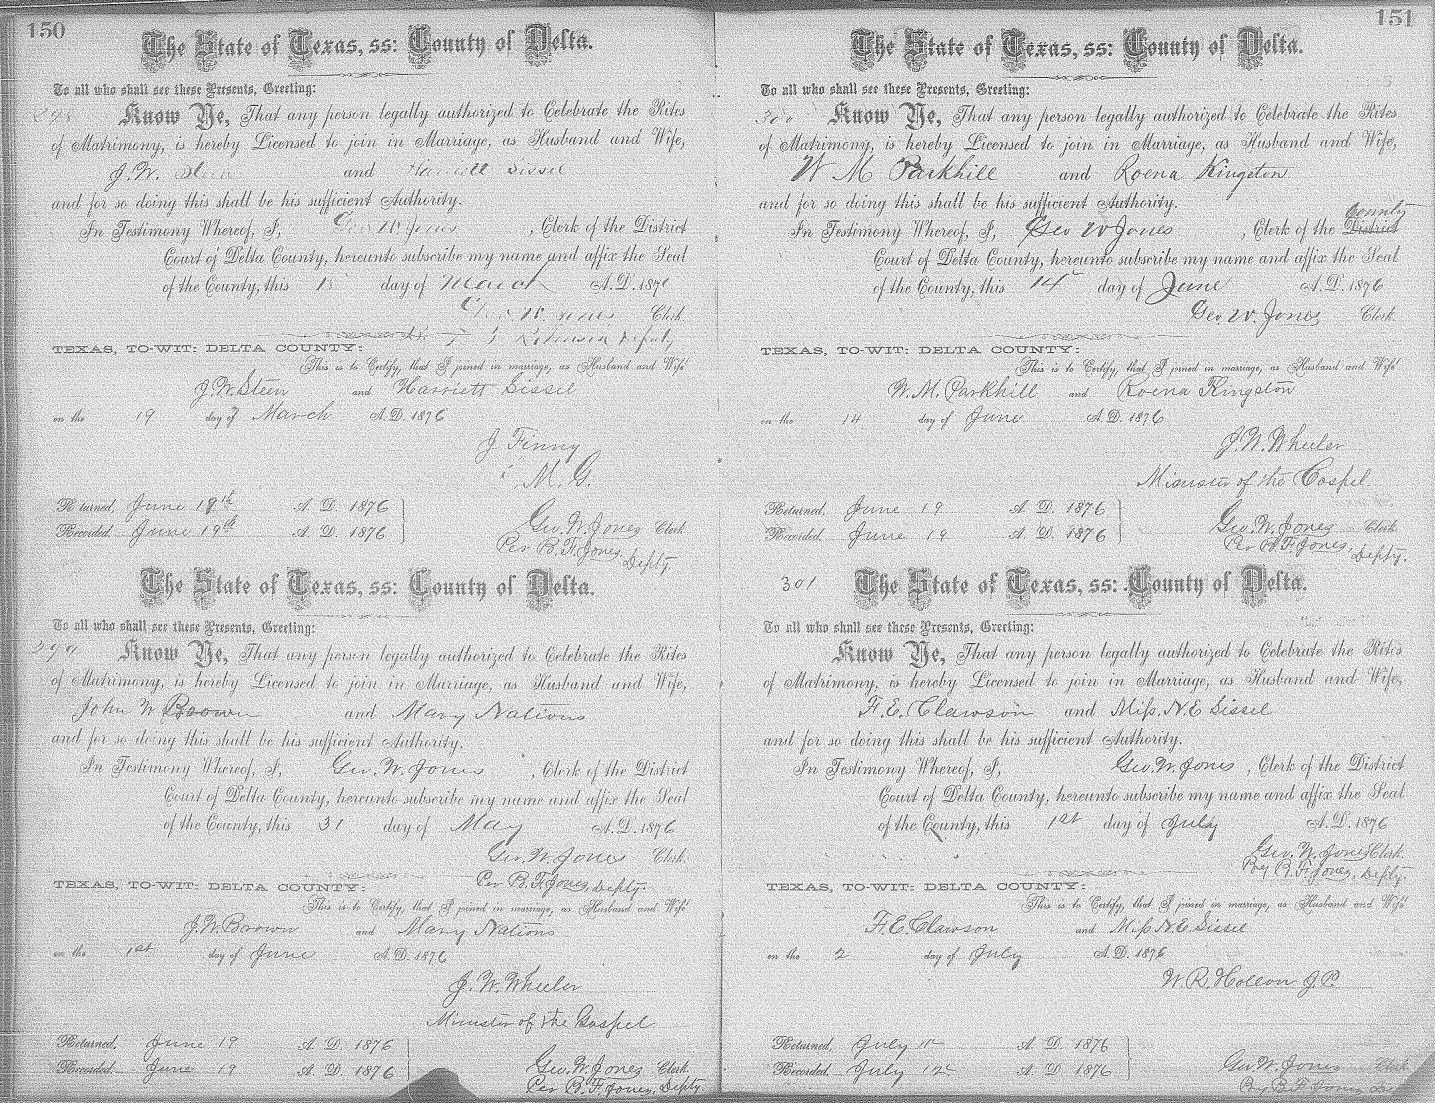 150
The State of Texas, ss: County of Delta.
To all who shall see these Presents, Greeting:
298 Know Ye, That any person legally authorized to Celebrate the Rites
of Matrimony, is hereby Licensed to join in Marriage, as Husband and Wife,
J. W. Stein and Harriett Sissel
and for so doing this shall be his sufficient Authority.
In Testimony Whereof, I, Geo W Jones , Clerk of the District
Court of Delta County, hereunto subscribe my name and affix the Seal
of the County, this day of March A.D. 1876
Geo W. Jones Clerk
Deputy
TEXAS, TO-WIT: DELTA COUNTY:
This is to Certify, that I joined in marriage, as Husband and Wife
J. W. Stein and Harriett Sissel
on the 19 day of March A.D. 1876
J Finny
M. G.
Returned, June 19th A. D. 1876
Recorded June 19th A. D. 1876
Geo. W. Jones Clerk
Per B. F. Jones, Depty.
The State of Texas, ss: County of Delta.
To all who shall see these Presents, Greeting:
299 Know Ye, That any person legally authorized to Celebrate the Rites
of Matrimony, is hereby Licensed to join in Marriage, as Husband and Wife,
John W Brown and Mary Nations
and for so doing this shall be his sufficient Authority.
In Testimony Whereof, I, Geo. W. Jones , Clerk of the District
Court of Delta County, hereunto subscribe my name and affix the Seal
of the County, this 31 day of May A.D. 1876
Geo. W. Jones Clerk.
Per B. F. Jones, Depty.
TEXAS, TO-WIT: DELTA COUNTY:
This is to Certify, that I joined in marriage, as Husband and Wife
J. W. Brown and Mary Nations
on the 1st day of June A.D. 1876
J. W. Wheeler
Minister of the Gospel
Returned, June 19 A. D. 1876
Recorded June 19 A. D. 1876
Geo. W. Jones Clerk.
Per B. F. Jones, Depty.
151
The State of Texas, ss: County of Delta.
To all who shall see these Presents, Greeting:
300 Know Ye, That any person legally authorized to Celebrate the Rites
of Matrimony, is hereby Licensed to join in Marriage, as Husband and Wife,
W M Parkhill and Roena Kingston
and for so doing this shall be his sufficient Authority.
County
In Testimony Whereof, I, Geo W Jones , Clerk of the District
Court of Delta County, hereunto subscribe my name and affix the Seal
of the County, this 14 day of June A.D. 1876
Geo. W. Jones Clerk
TEXAS, TO-WIT: DELTA COUNTY:
This is to Certify, that I joined in marriage, as Husband and Wife
W. M. Parkhill and Roena Kingston
on the 14 day of June A.D. 1876
J. W. Wheeler
Minister of the Gospel.
Returned, June 19 A. D. 1876
Recorded, June 19 A. D. 1876
Geo. W. Jones Clerk
Per B. F. Jones, Depty.
301 The State of Texas, ss: County of Delta.
To all who shall see these Presents, Greeting:
Know Ye, That any person legally authorized to Celebrate the Rites
of Matrimony, is hereby Licensed to join in Marriage, as Husband and Wife,
F. E. Clawson and Miss. N. E Sissel
and for so doing this shall be his sufficient Authority.
In Testimony Whereof, I, Geo. W. Jones , Clerk of the District
Court of Delta County, hereunto subscribe my name and affix the Seal
of the County, this 1st day of July A.D. 1876
Geo. W. Jones Clerk.
By B. F. Jones, Depty.
TEXAS, TO-WIT: DELTA COUNTY:
This is to Certify, that I joined in marriage, as Husband and Wife
F. E. Clawson and Miss N. E Sissel
on the 2 day of July A.D. 1876
W. R. J. P.
Returned, July A. D. 1876
Recorded, July 12 A. D. 1876
Geo. W. Jones Clerk
By B. F. Jones,